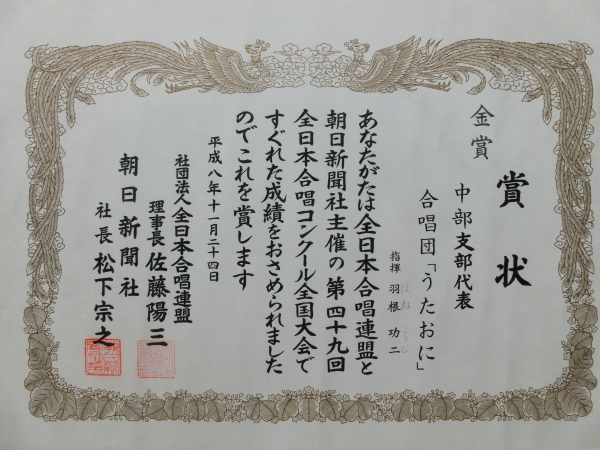 賞状
金賞
中部支部代表
合唱団「うたおに」
指揮 羽根 功二
はね こうじ
あなたがたは全日本合唱連盟と
朝日新聞社主催の第四十九回
全日本合唱コンクール全国大会で
すぐれた成績をおさめられました
のでこれを賞します
平成八年十一月二十四日
社団法人全日本合唱連盟
理事長 佐藤陽三
朝日新聞社
社長 松下宗之